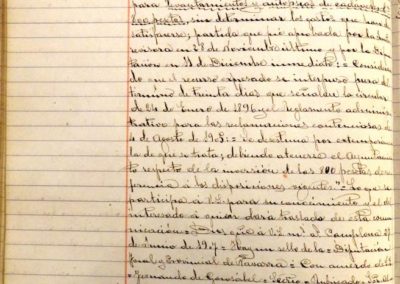 para levantamientos y autopsias de cadáveres de
800 pesetas, sin determinar los gastos que han de
satisfacerse; partida que fué aprobada por la
en 28 de Noviembre último y por la Di-
en 11 de Diciembre inmediato: = Conside-
do que el recurso expresado se interpuso pasado el
término de treinta días que señalan la circular
de 24 de Enero de 1896 y el reglamento adminis-
trativo para las reclamaciones contenciosas de
4 de Agosto de = Se desestima por extempo-
la de que se trata; debiendo atenerse el Ayuntami-
respeto de la inversión de las 800 pesetas de
ferencia á las disposiciones vigentes." = Lo que se
participa á V.S. para su conocimiento y el del
interesado á quien dará traslado de esta comu-
nicación. Dios gue á V.S. m. a. Pamplona 27
de Junio de = Hay un sello de la = Diputación
Foral y Provincial de Navarra = Con acuerdo de S.E.
Fernando de Gorosabel = Secrio = Rubricado =